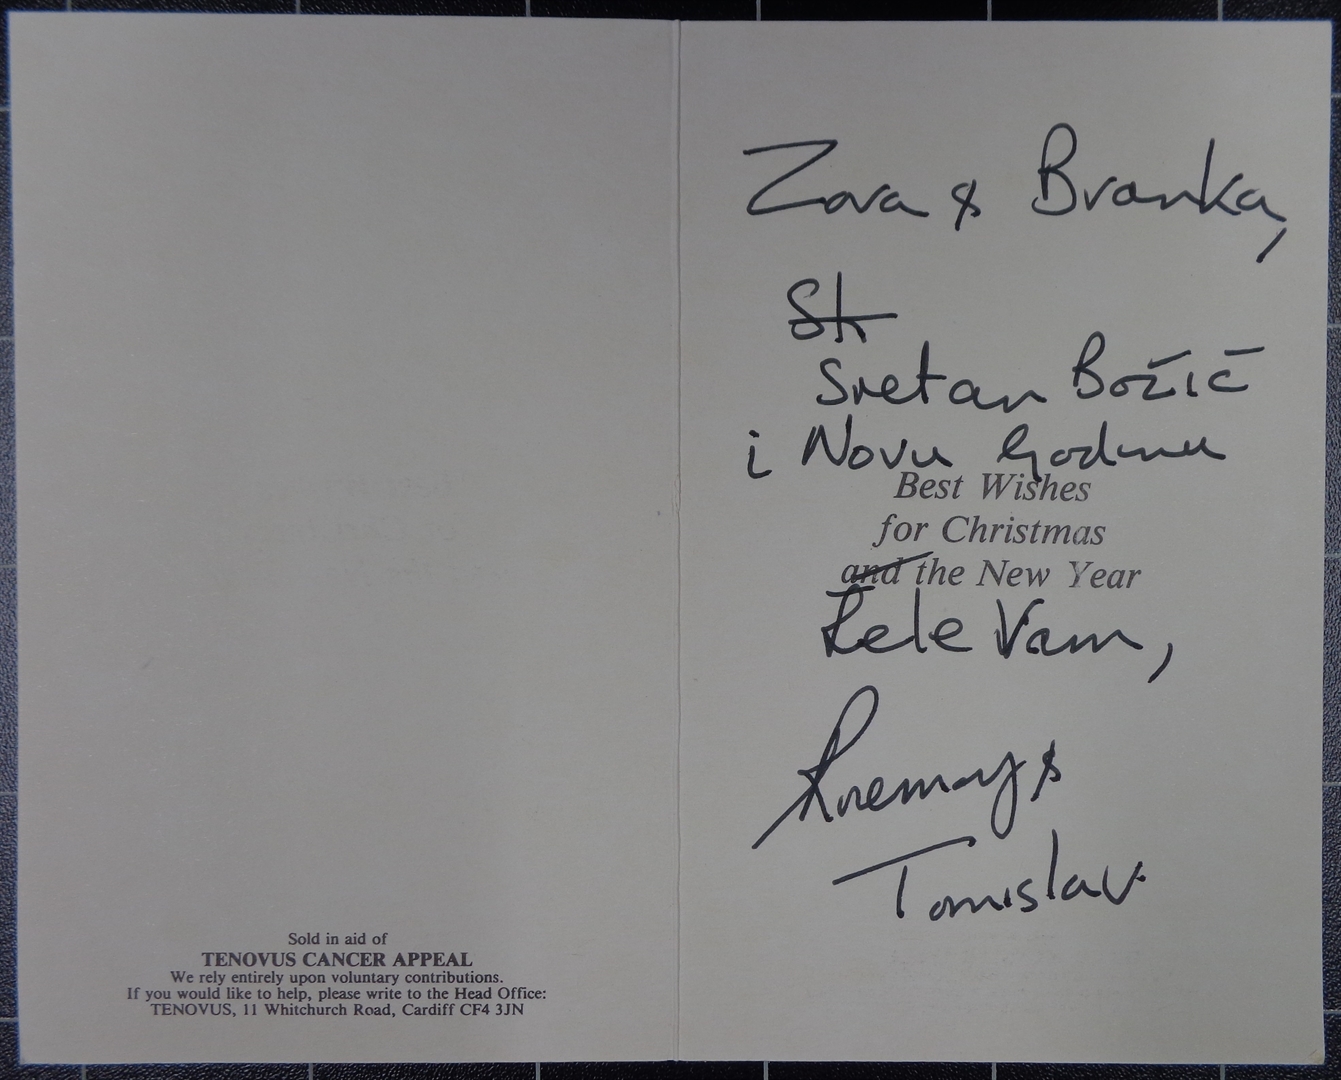 Sold in aid of
TENOVUS CANCER APPEAL
We rely entirely upon voluntary contributions.
If you would like to help, please write to the Head Office:
TENOVUS, 11 Whitchurch Road, Cardiff CF4 3JN
Zora & Branka,
St
Sretan Božić
i Novu Godinu
Best Wishes
for Christmas
and the New Year
Žele Vam,
Rosemary &
Tomislav